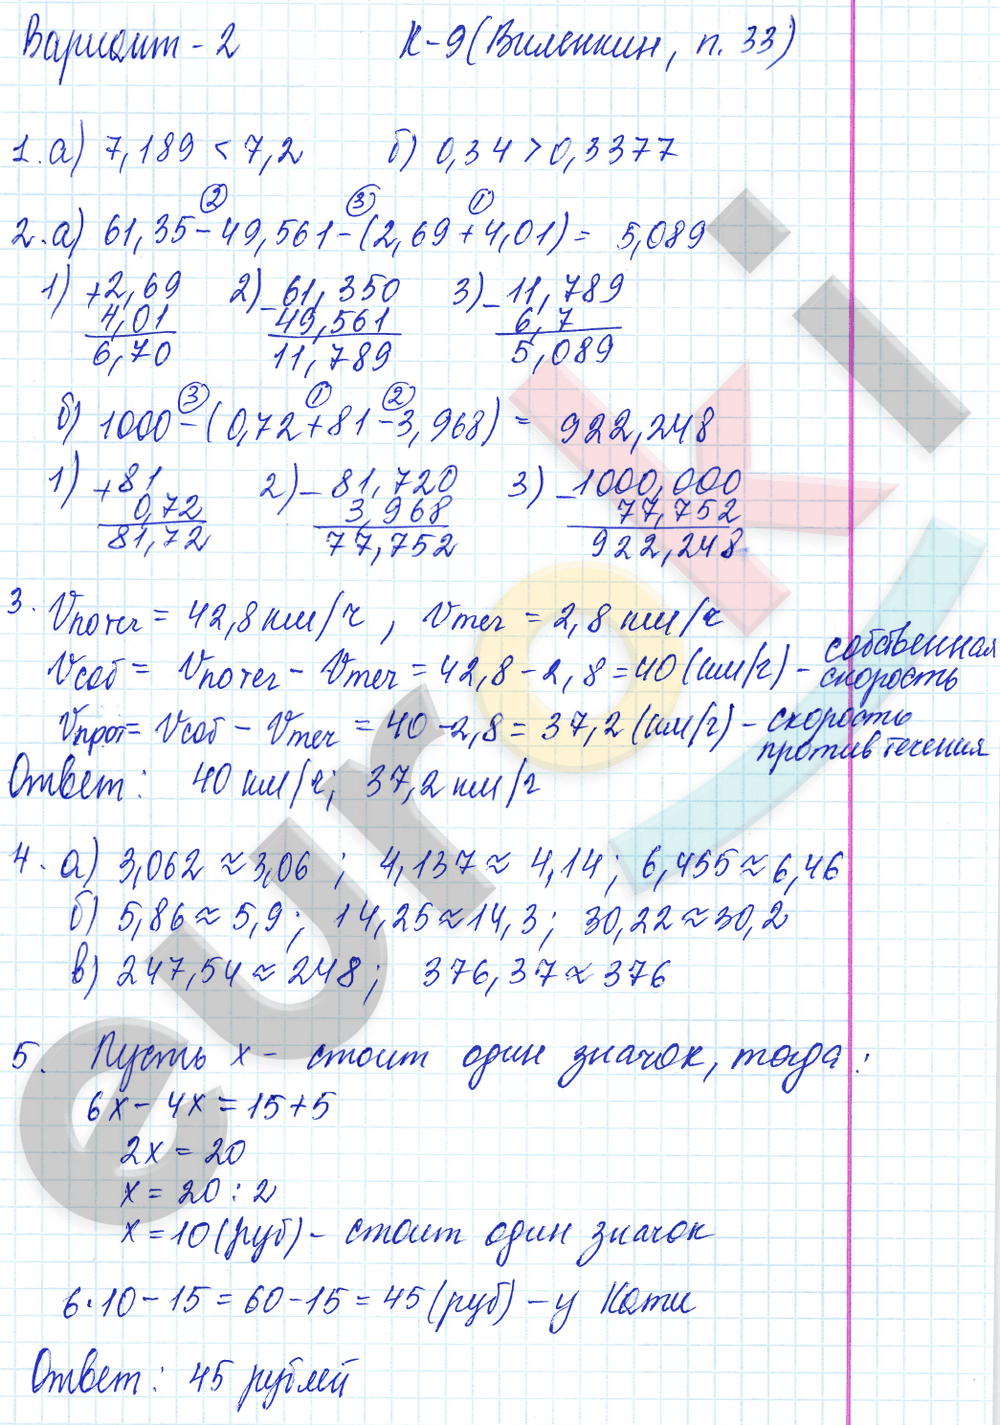 Вариант - 2 К-9 (Виленкин, п. 33)
1. а) 7,189 < 7,2 б) 0,34 > 0,3377
2. а) 61,35 - 49,561 - (2,69 + 4,01) = 5,089
② ③ ①
1) +2,69 2) -61,350 3) -11,789
4,01 49,561 6,7
6,70 11,789 5,089
③ ① ②
б) 1000 - (0,72 + 81 - 3,968) = 922,248
1) +81 2) -81,720 3) -1000,000
0,72 3,968 77,752
81,72 77,752 922,248
3. Vпо теч = 42,8 км/ч, Vтеч = 2,8 км/ч
Vсоб = Vпо теч - Vтеч = 42,8 - 2,8 = 40 (км/ч) - собственная скорость
Vпрот = Vсоб - Vтеч = 40 - 2,8 = 37,2 (км/ч) - скорость против течения
Ответ: 40 км/ч; 37,2 км/ч
4. а) 3,062 ≈ 3,06; 4,137 ≈ 4,14; 6,455 ≈ 6,46
б) 5,86 ≈ 5,9; 14,25 ≈ 14,3; 30,22 ≈ 30,2
в) 247,54 ≈ 248; 376,37 ≈ 376
5. Пусть х - стоит один значок, тогда:
6х - 4х = 15 + 5
2х = 20
х = 20 : 2
х = 10 (руб) - стоит один значок
6·10 - 15 = 60 - 15 = 45 (руб) - у Кати
Ответ: 45 рублей
euroki